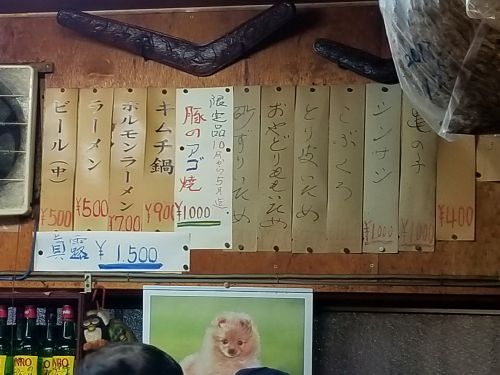 亀の子
¥1000
シンサシ
¥1,000
こぶくろ
とり皮いため
おやどりももいため
砂ずりいため
限定品10月から5月迄
豚のアゴ焼
¥1000
キムチ鍋
¥900
ホルモンラーメン
¥700
ラーメン
¥500
ビール(中)
¥500
¥400
真露 ¥1,500